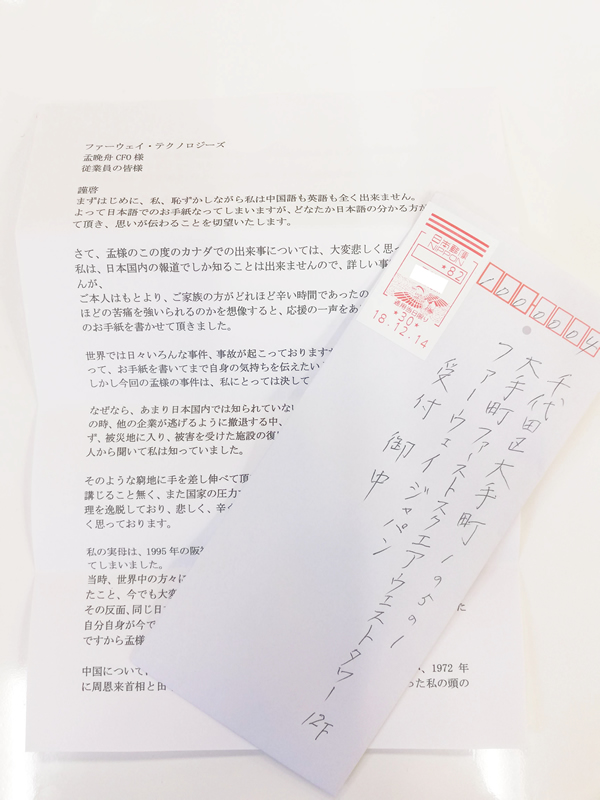 ファーウェイ・テクノロジーズ
孟晩舟 CFO 様
従業員の皆様
謹啓
まずはじめに、私、恥ずかしながら私は中国語も英語も全く出来ません。
よって日本語でのお手紙なってしまいますが、どなたか日本語の分かる方が
て頂き、思いが伝わることを切望いたします。
さて、孟様のこの度のカナダでの出来事については、大変悲しく思っ
私は、日本国内の報道でしか知ることは出来ませんので、詳しい事
んが、
ご本人はもとより、ご家族の方がどれほど辛い時間であったの
ほどの苦痛を強いられるのかを想像すると、応援の一声をあ
のお手紙を書かせて頂きました。
世界では日々いろんな事件、事故が起こっております
って、お手紙を書いてまで自身の気持ちを伝えたい
しかし今回の孟様の事件は、私にとっては決して
なぜなら、あまり日本国内では知られていない
の時、他の企業が逃げるように撤退する中、
ず、被災地に入り、被害を受けた施設の復
人から聞いて私は知っていました。
そのような窮地に手を差し伸べて頂
講じること無く、また国家の圧力
理を逸脱しており、悲しく、辛く
く思っております。
私の実母は、1995 年の阪
てしまいました。
当時、世界中の方々に
たこと、今でも大変
その反面、同じ日
自分自身が今で
ですから孟様
中国について、
、1972 年
に周恩来首相と田
った私の頭の
日本郵便
NIPPON
*82
*30*
18.12.14
1000004
千代田区大手町1の5の1
大手町ファーストスクエアウェストタワー12F
ファーウェイジャパン
受付 御中